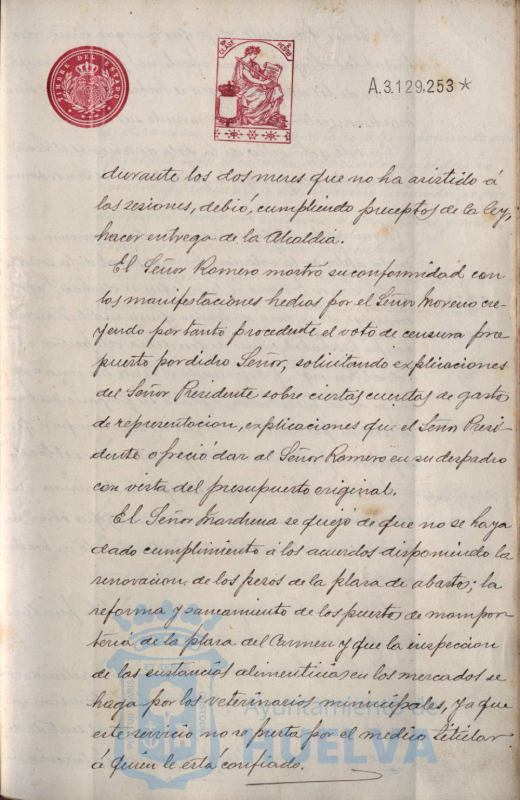 TIMBRE DEL ESTADO
CLASE
A.3.129,253 *
durante los dos meses que no ha asistido á
las sesiones, debió, cumpliendo preceptos de la ley,
hacer entrega de la Alcaldia.
El Señor Romero mostró su conformidad con
las manifestaciones hechas por el Señor Moreno cre-
yendo por tanto procedente el voto de censura pro-
puesto por dicho Señor, solicitando explicaciones
del Señor Presidente sobre ciertas cuentas de gastos
de representacion, explicaciones que el Señor Presi-
dente ofreció dar al Señor Romero en su despacho
con vista del presupuesto original.
El Señor se quejó de que no se haya
dado cumplimiento á los acuerdos disponiendo la
renovacion de los pesos de la plaza de abastos; la
reforma y saneamiento de los puestos de mampos-
teria de la plaza del Carmen y que la inspeccion
de las sustancias alimenticias en los mercados se
haga por los veterinarios municipales, ya que
este servicio no se presta por el medico titular
á quien le está confiado.
Ayuntamiento de
HUELVA